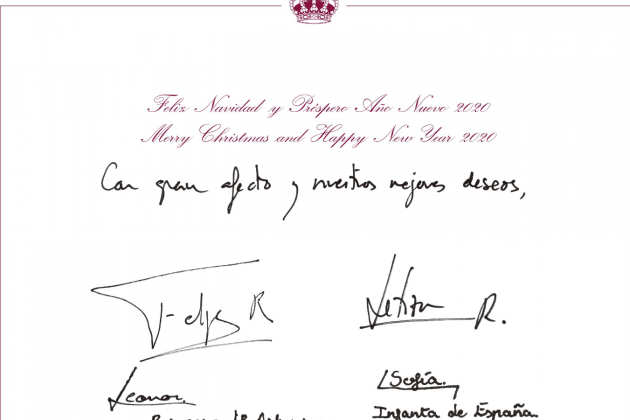 Feliz Navidad y Próspero Año Nuevo 2020
Merry Christmas and Happy New Year 2020
Con gran afecto y nuestros mejores deseos,
Felipe R
Letizia R.
Leonor.
Sofía.
Infanta de España.